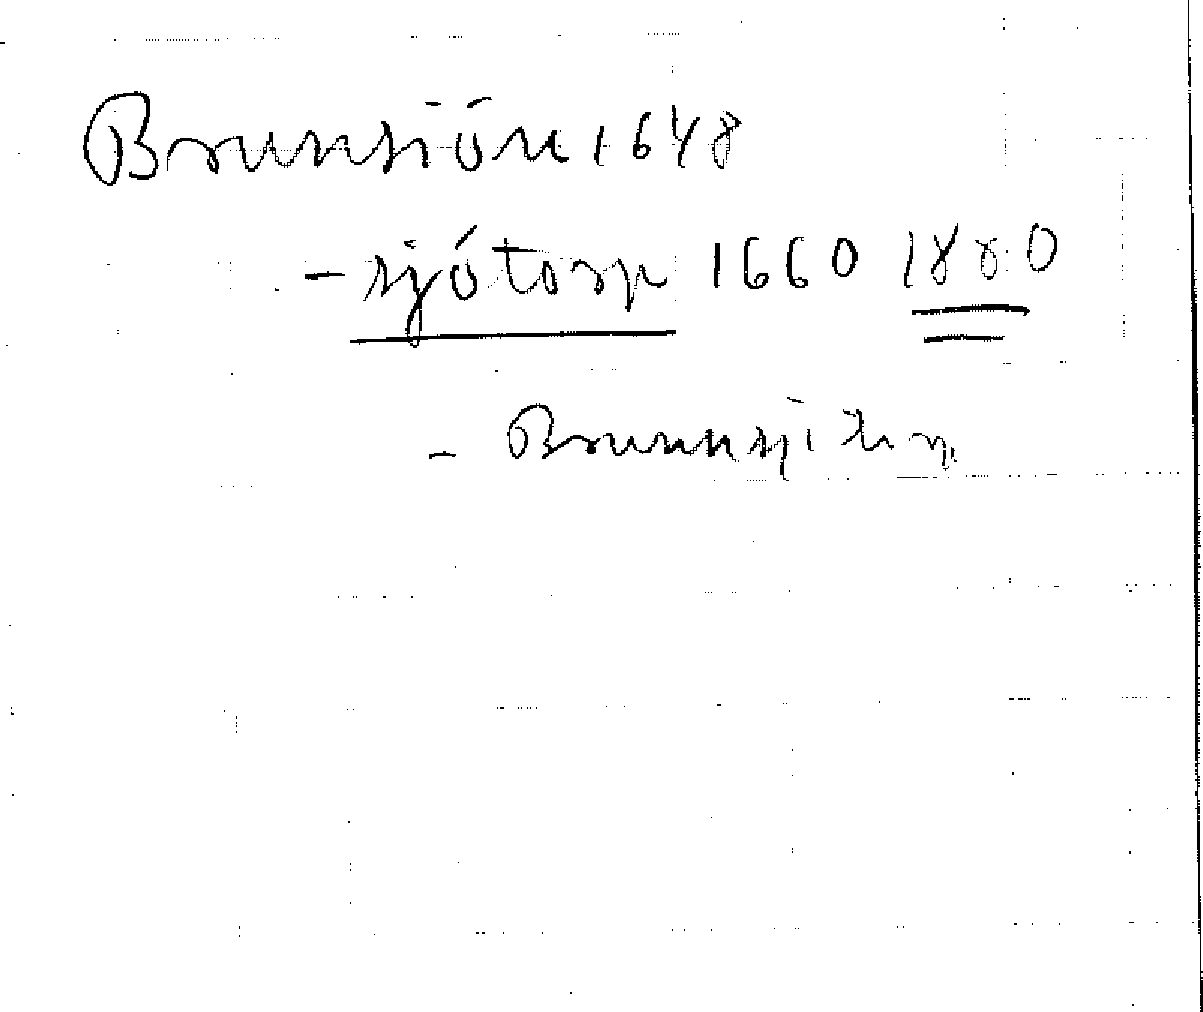 Brunsiön 1648
- sjötorp 1660 1880
- Brunnsjötorp